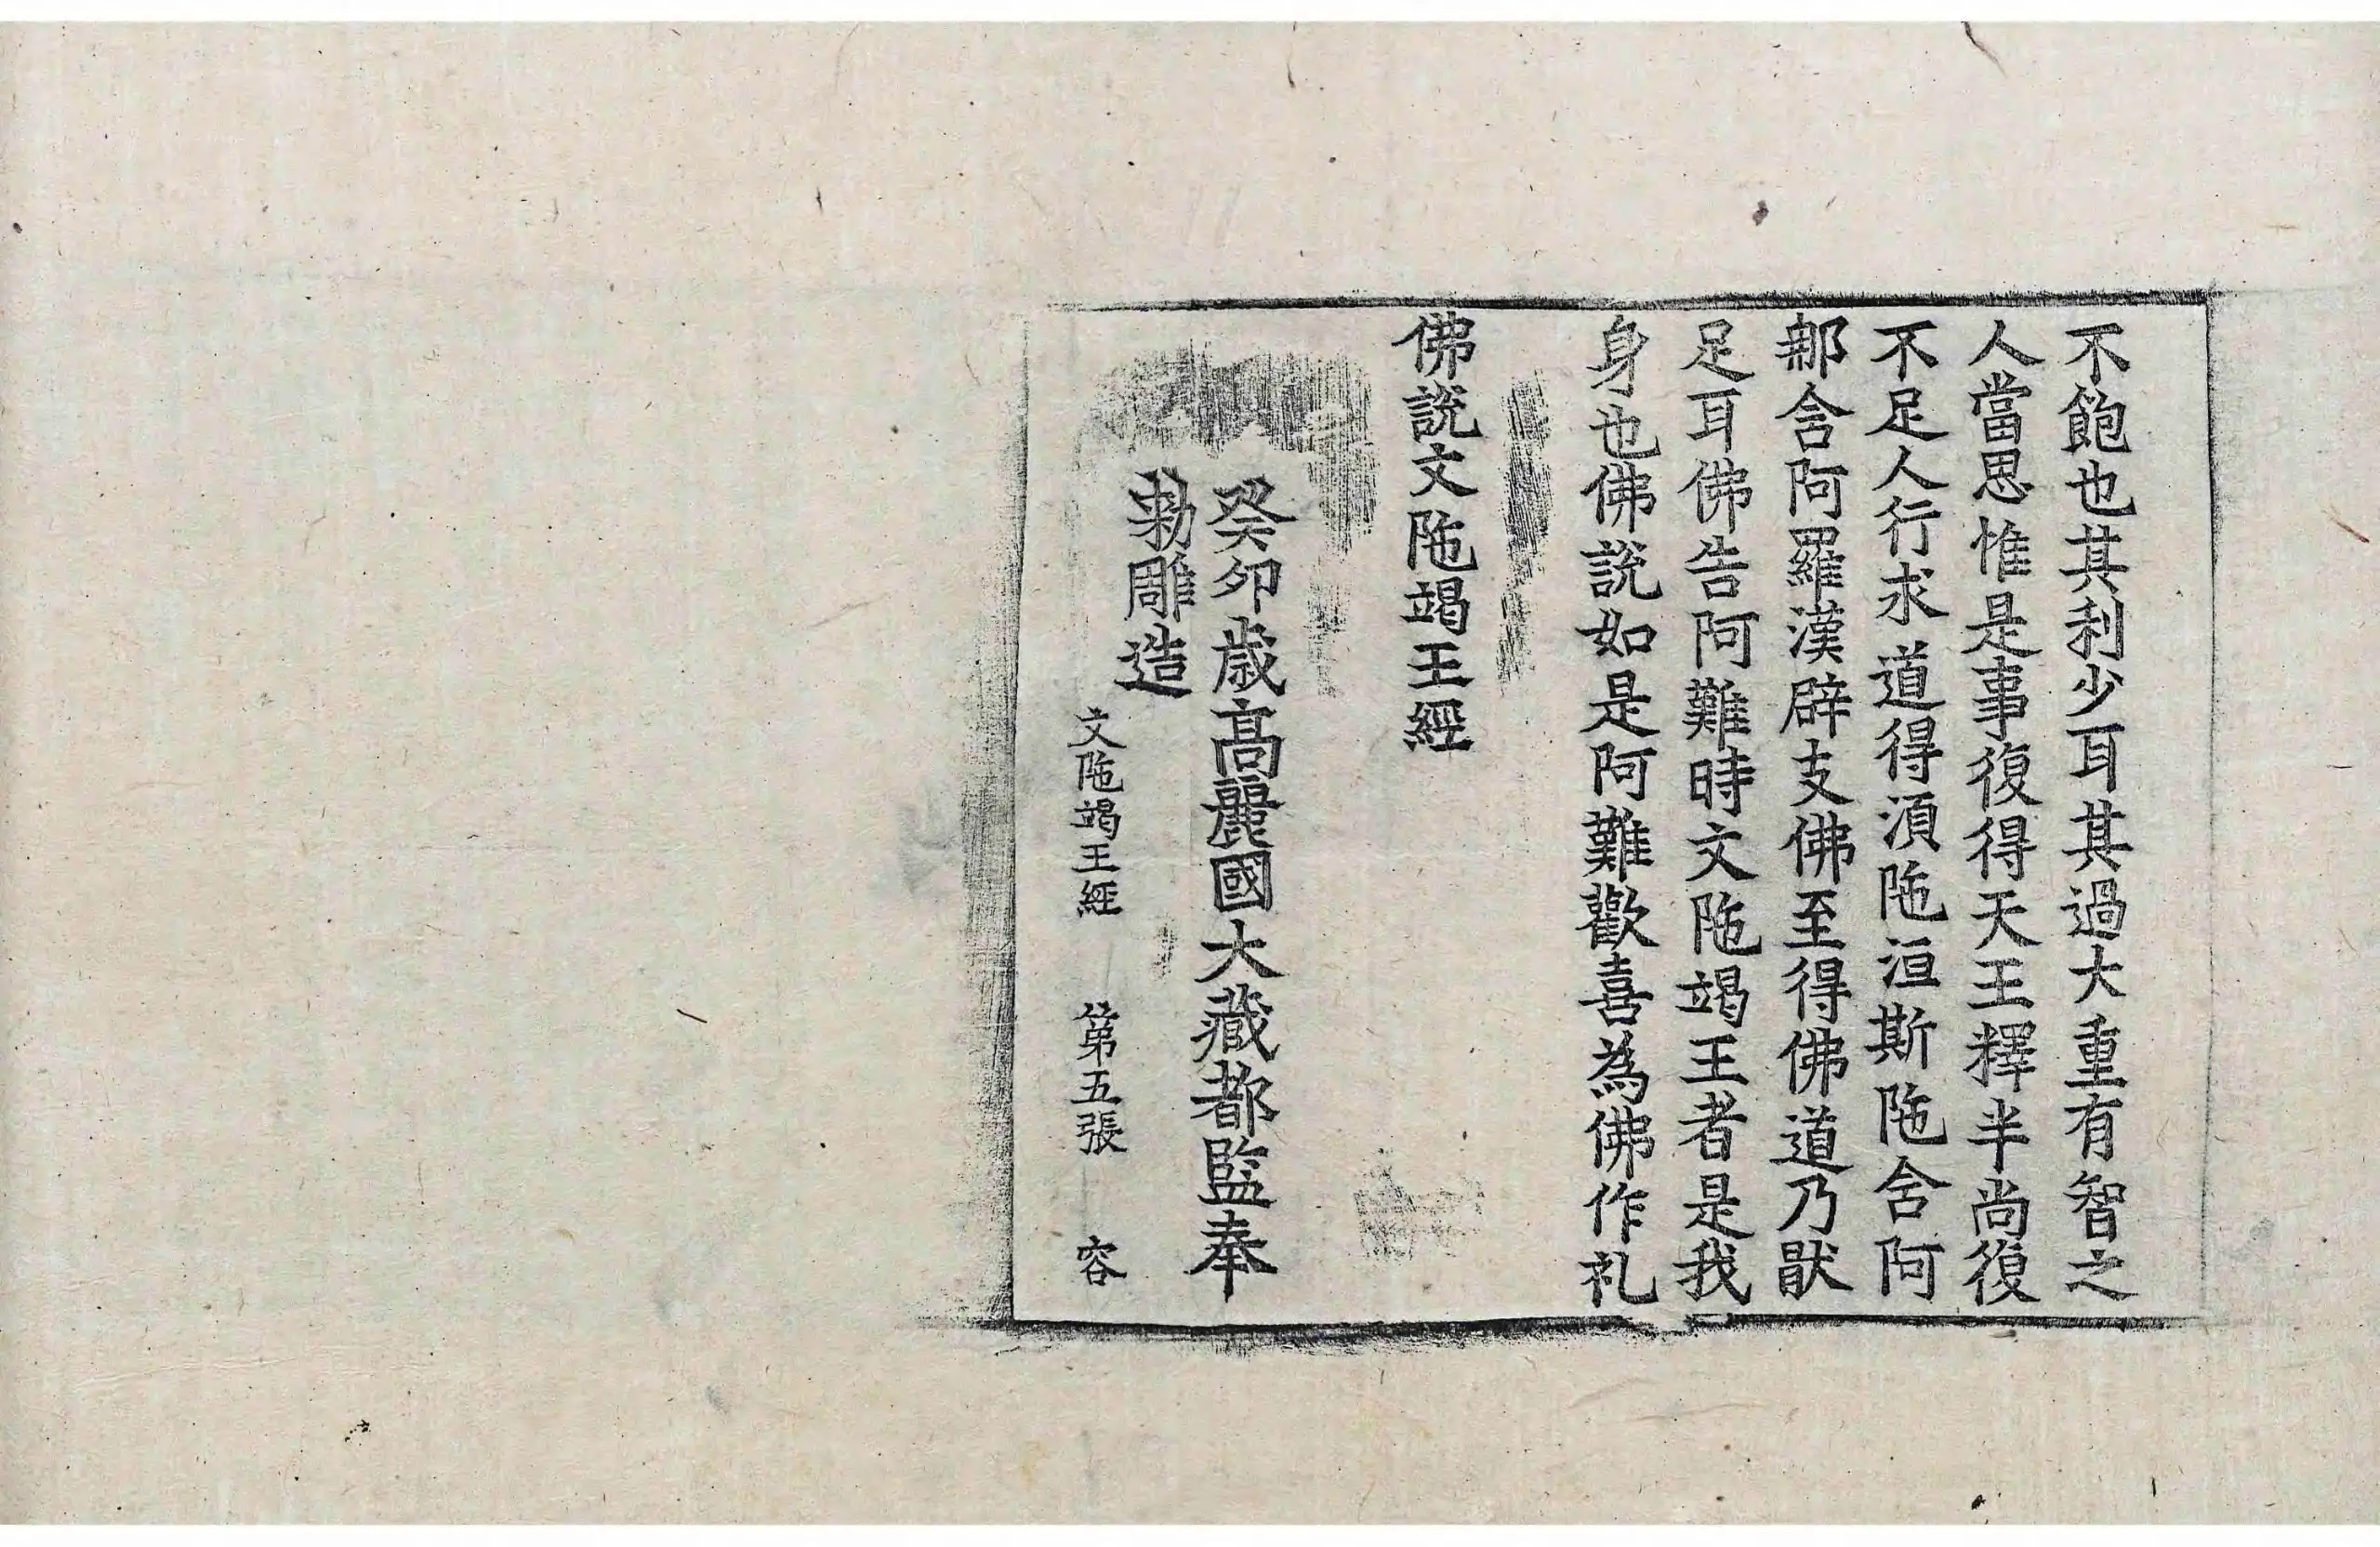 不飽也其利少耳其過大重有智之
人當思惟是事復得天王釋半尚復
不足人行求道得湏陁洹斯陁含阿
那含阿羅漢辟支佛至得佛道乃猒
足耳佛告阿難時文陁竭王者是我
身也佛說如是阿難歡喜為佛作礼
佛說文陁竭王經
癸卯歳高麗國大藏都監奉
勅雕造
文陁竭王經 第五張 容